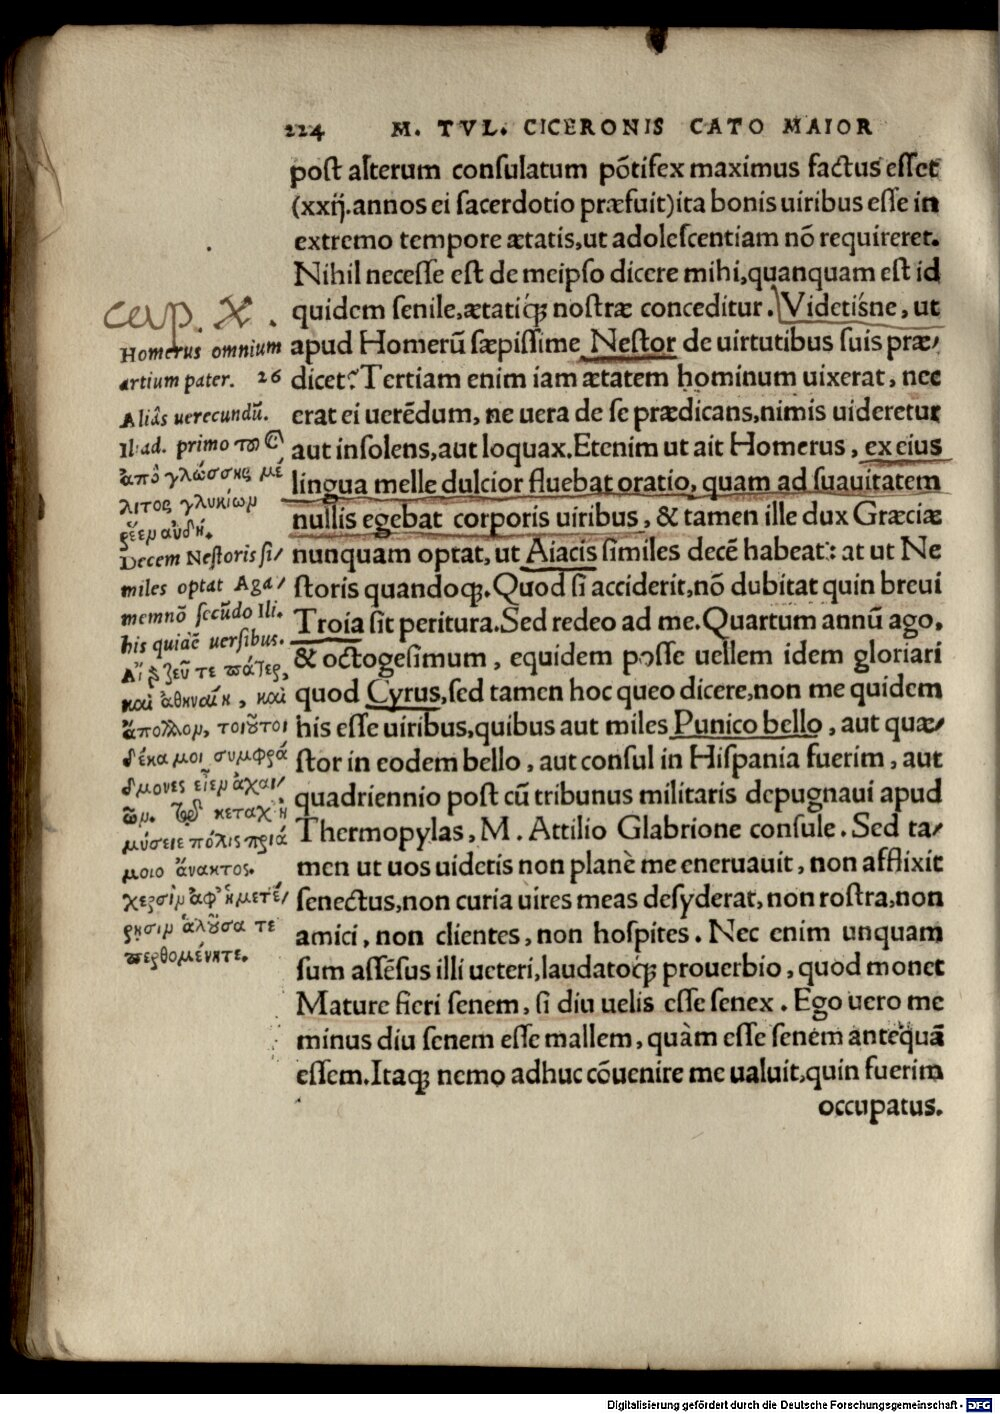 224 M. TVL. CICERONIS CATO MAIOR
post alterum consulatum põtifex maximus factus esset
(xxij. annos ei sacerdotio præfuit) ita bonis uiribus esse in
extremo tempore ætatis, ut adolescentiam nõ requireret.
Nihil necesse est de meipso dicere mihi, quanquam est id
quidem senile, ætatiq; nostræ conceditur. Videtisne, ut
apud Homerũ sæpissime Nestor de uirtutibus suis præ/
dicet? Tertiam enim iam ætatem hominum uixerat, nec
erat ei uerẽdum, ne uera de se prædicans, nimis uideretur
aut insolens, aut loquax. Etenim ut ait Homerus, ex eius
lingua melle dulcior fluebat oratio, quam ad suauitatem
nullis egebat corporis uiribus, & tamen ille dux Græciæ
nunquam optat, ut Aiacis similes decẽ habeat: at ut Ne
storis quandoq;. Quod si acciderit, nõ dubitat quin breui
Troia sit peritura. Sed redeo ad me. Quartum annũ ago,
& octogesimum, equidem posse uellem idem gloriari
quod Cyrus, sed tamen hoc queo dicere, non me quidem
his esse uiribus, quibus aut miles Punico bello, aut quæ/
stor in eodem bello, aut consul in Hispania fuerim, aut
quadriennio post cũ tribunus militaris depugnaui apud
Thermopylas, M. Attilio Glabrione consule. Sed ta/
men ut uos uidetis non planè me eneruauit, non afflixit
senectus, non curia uires meas desyderat, non rostra, non
amici, non clientes, non hospites. Nec enim unquam
sum assẽsus illi ueteri, laudatoq; prouerbio, quod monet
Mature fieri senem, si diu uelis esse senex. Ego uero me
minus diu senem esse mallem, quàm esse senem antequã
essem. Itaq; nemo adhuc cõuenire me ualuit, quin fuerim
occupatus.
cap. X.
Homerus omnium
artium pater. 26
Aliâs uerecundũ.
Iliad. primo τοῦ
ἀπὸ γλώσσης μέ
λιτος γλυκίων
ῥέεν αὐδή.
Decem Nestoris si/
miles optat Aga/
memnõ secũdo Ili.
his quidẽ uersibus.
Αἲ γὰρ ζεῦ τε πάτερ,
καὶ ἀθηναίη, καὶ
ἄπολλον, τοιοῦτοι
δέκα μοι συμφρά
δμονες εἶεν ἀχαι/
ῶν. κε ταχ᾽ ἠ
μύσειε πόλις πριά
μοιο ἄνακτος.
χερσὶν ἀφ᾽ ἡμετέ/
ρησιν ἁλοῦσα τε
περθομένητε.
Digitalisierung gefördert durch die Deutsche Forschungsgemeinschaft - DFG